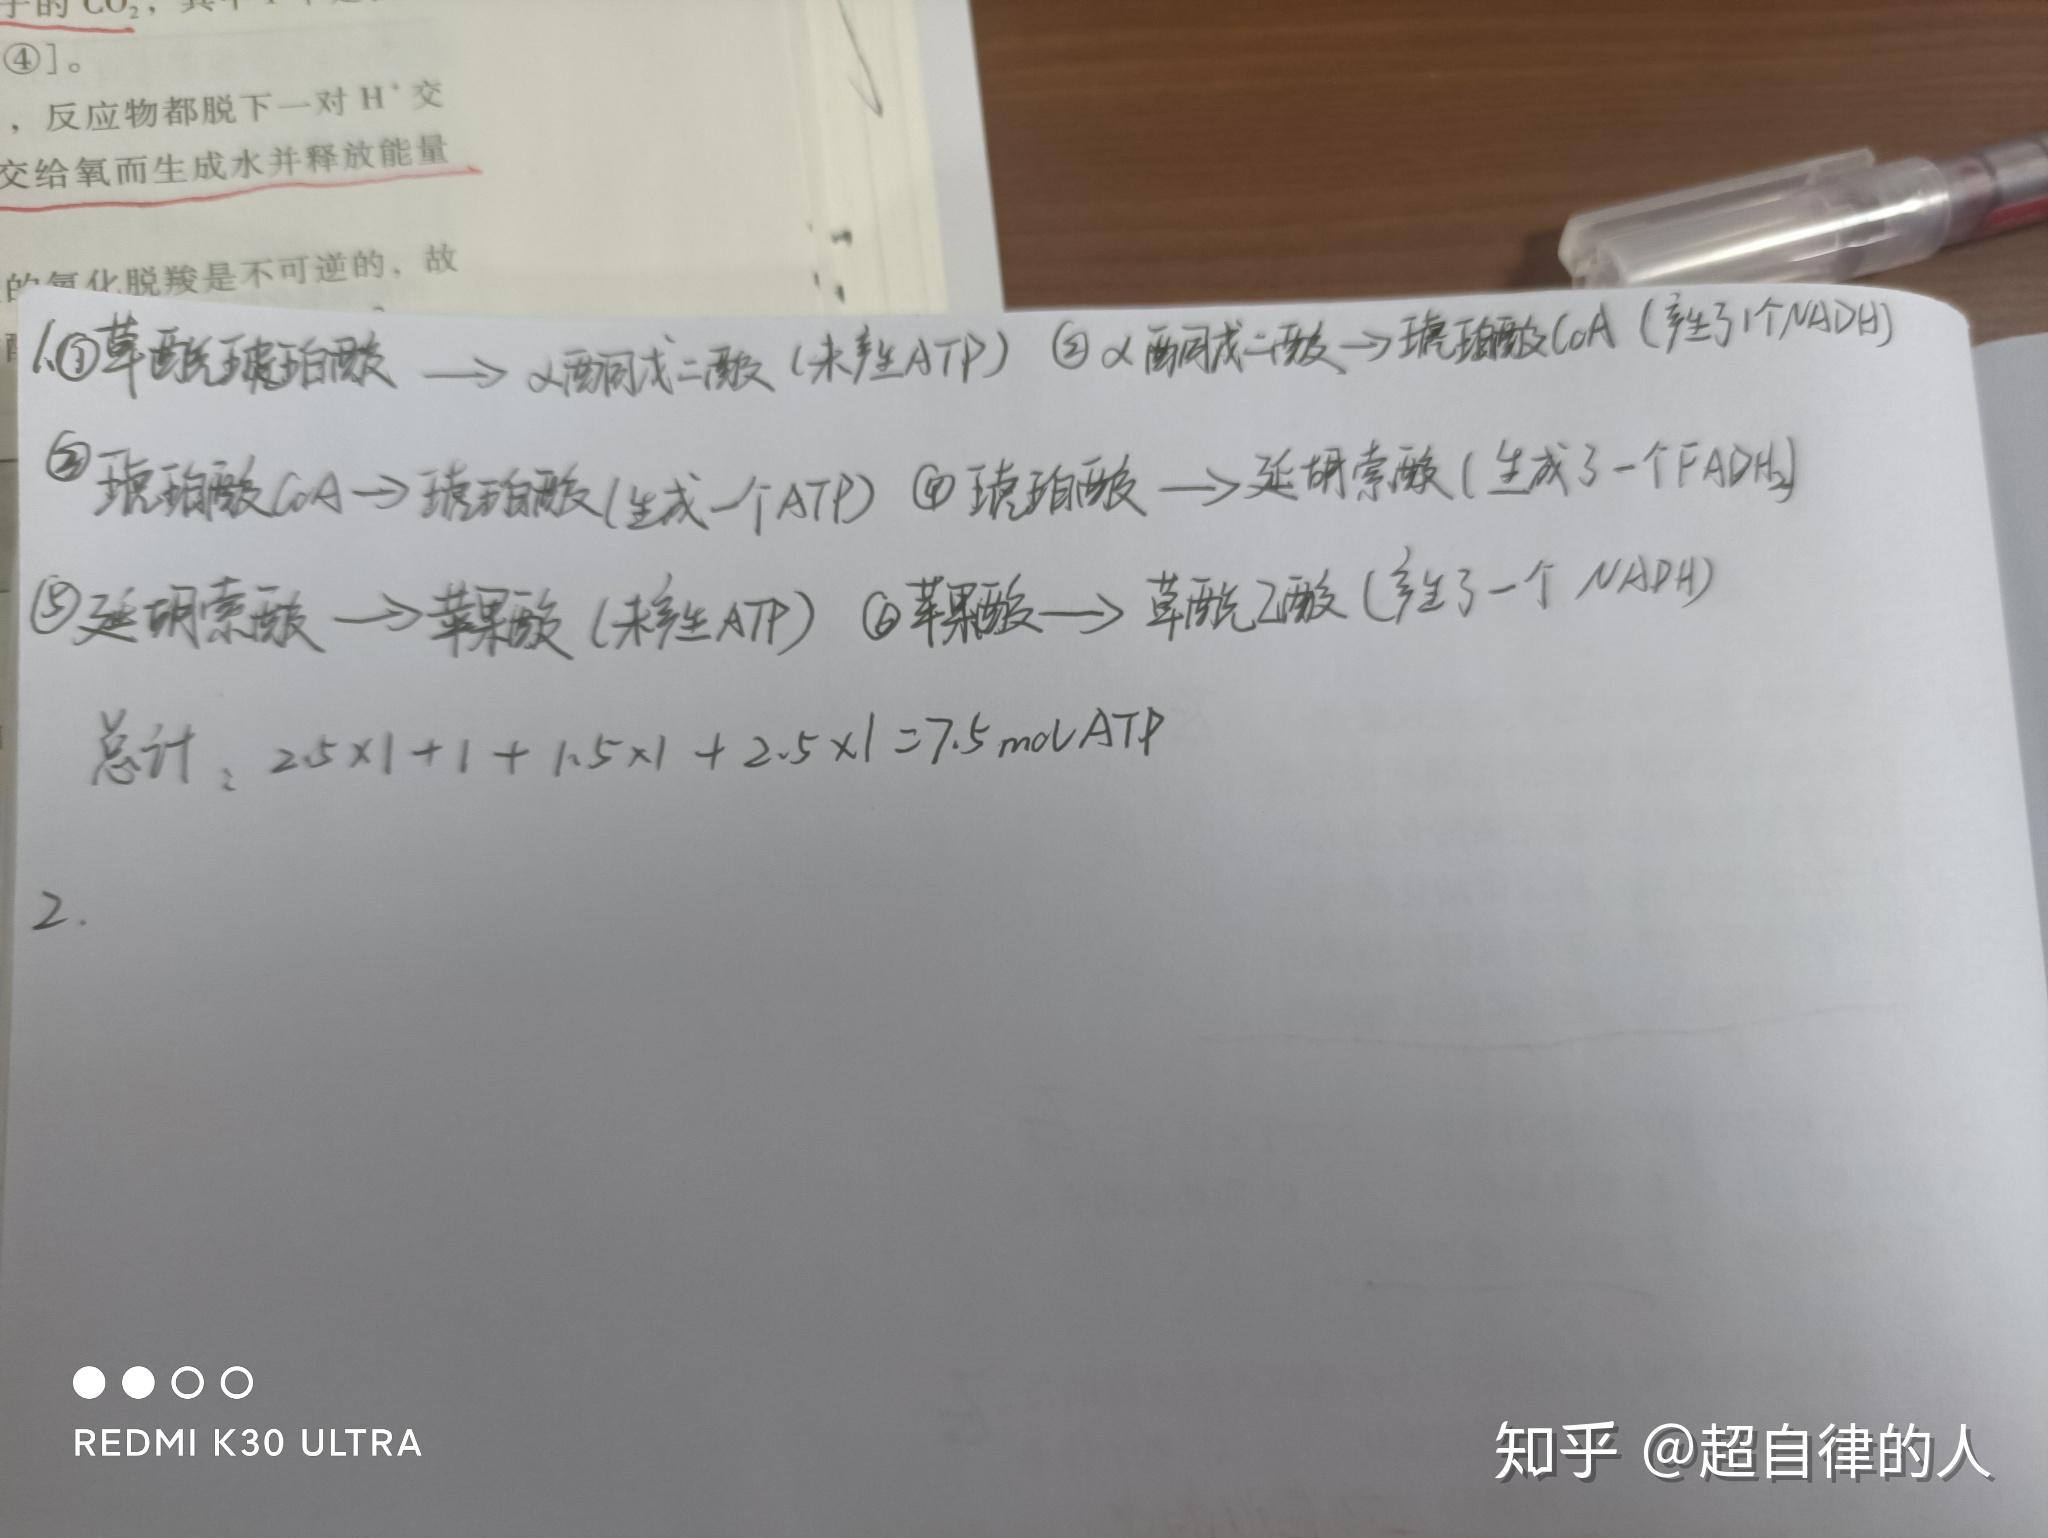 子的CO₂，其中
④]。
，反应物都脱下一对H⁺交
交给氧而生成水并释放能量
的氧化脱羧是不可逆的，故
1.①草酰琥珀酸→α酮戊二酸(未产生ATP) ②α酮戊二酸→琥珀酸CoA(产生了1个NADH)
③琥珀酸CoA→琥珀酸(生成一个ATP) ④琥珀酸→延胡索酸(生成了一个FADH₂)
⑤延胡索酸→苹果酸(未产生ATP) ⑥苹果酸→草酰乙酸(产生了一个NADH)
总计：2.5×1+1+1.5×1+2.5×1=7.5molATP
2.
REDMI K30 ULTRA
知乎 @超自律的人